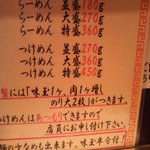 らーめん 並盛180g
らーめん 大盛270g
らーめん 特盛360g
つけめん 並盛270g
つけめん 大盛360g
つけめん 特盛450g
製には「味玉1ヶ、肉1ヶ増し
のり大2枚」がつきます。
つけめんはあつもりできますので
店員にお申し付け下さい。
麺の少なめも出来ます。味玉半分付!